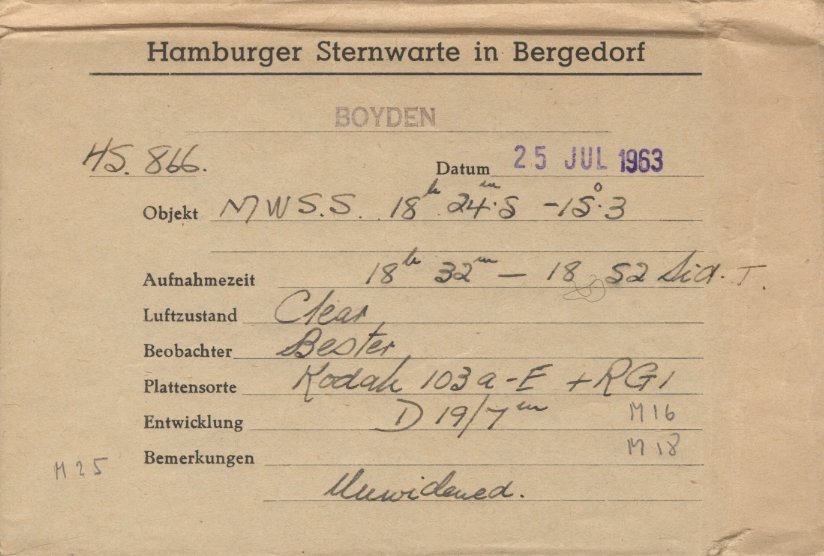 Hamburger Sternwarte in Bergedorf
BOYDEN
HS. 866.
Datum 25 JUL 1963
Objekt MWSS. 18ʰ 24ᵐ.5 -15°.3
Aufnahmezeit 18ʰ 32ᵐ — 18 52 Sid. T.
Luftzustand Clear
Beobachter Bester
Plattensorte Kodak 103a-E + RG1
Entwicklung D 19/7ᵐ M16
Bemerkungen M18
M25
Unwidened.